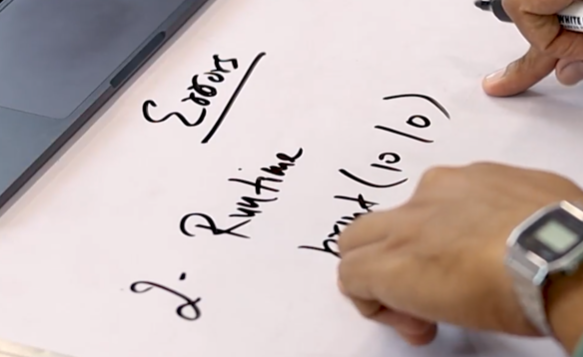 Errors
2. Runtime
print(10/0)
WHITE